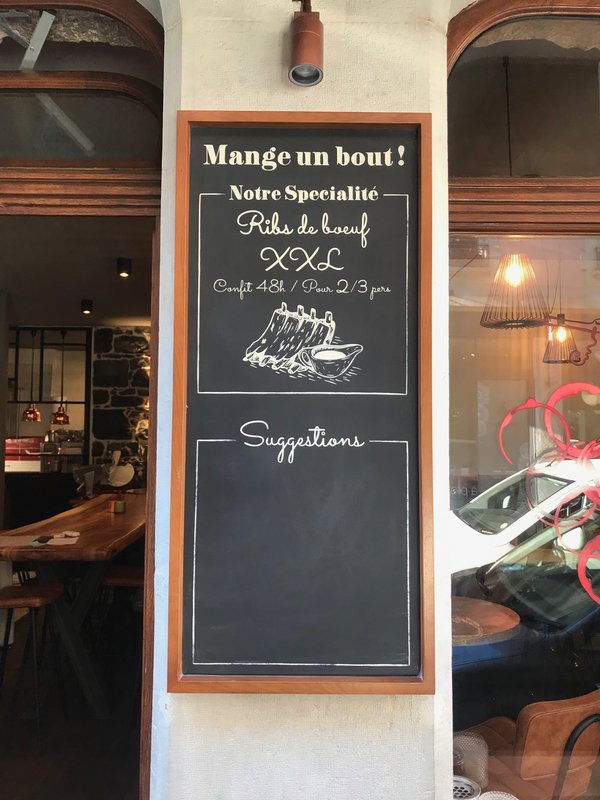 Mange un bout !
Notre Specialité
Ribs de boeuf
XXL
Confit 48h / Pour 2/3 pers
Suggestions